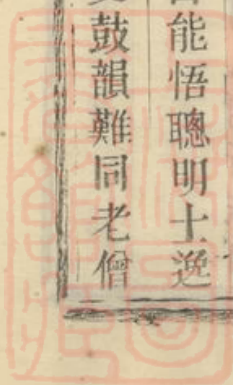 能悟聰明士逸
鼓韻難同老僧